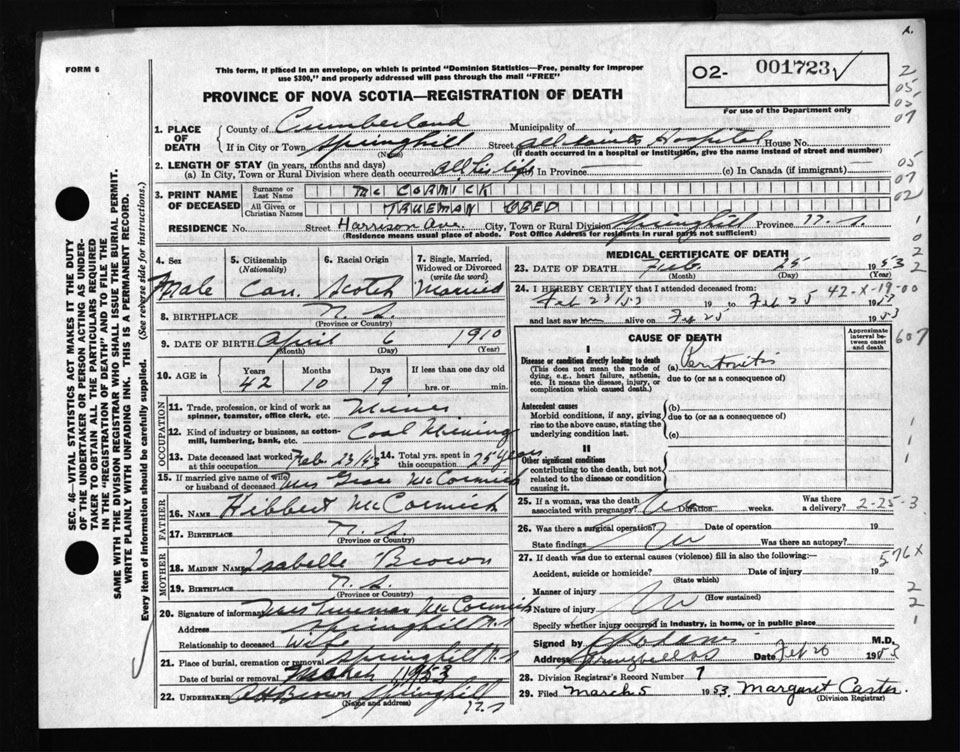 R.
FORM 6
This form, if placed in an envelope, on which is printed "Dominion Statistics—Free, penalty for improper
use $300," and properly addressed will pass through the mail "FREE"
O2- 001723
PROVINCE OF NOVA SCOTIA—REGISTRATION OF DEATH
For use of the Department only
1. PLACE OF DEATH
County of Cumberland Municipality of
If in City or Town Springhill Street All Saints Hospital House No.
(Name) (If death occurred in a hospital or institution, give the name instead of street and number)
2. LENGTH OF STAY (in years, months and days)
(a) In City, Town or Rural Division where death occurred all his life (b) In Province (c) In Canada (if immigrant)
3. PRINT NAME OF DECEASED
Surname or Last Name McCORMICK
All Given or Christian Names TRUEMAN OBED
RESIDENCE No. Street Harrison Ave. City, Town or Rural Division Springhill Province N. S.
(Residence means usual place of abode. Post Office Address for residents in rural parts not sufficient)
4. Sex Male
5. Citizenship (Nationality) Can.
6. Racial Origin Scotch
7. Single, Married, Widowed or Divorced (write the word) Married
8. BIRTHPLACE N. S.
(Province or Country)
9. DATE OF BIRTH April 6 1910
(Month) (Day) (Year)
10. AGE in Years Months Days If less than one day old
42 10 19 hrs. or min.
OCCUPATION
11. Trade, profession, or kind of work as
spinner, teamster, office clerk, etc. Miner
12. Kind of industry or business, as cotton-
mill, lumbering, bank, etc. Coal Mining
13. Date deceased last worked
at this occupation Feb. 23/53
14. Total yrs. spent in
this occupation 25 years
15. If married give name of wife
or husband of deceased Mrs Grace McCormick
FATHER
16. NAME Hibbert McCormick
17. BIRTHPLACE N. S.
(Province or Country)
MOTHER
18. MAIDEN NAME Isabelle Brown
19. BIRTHPLACE N. S.
(Province or Country)
20. Signature of informant Mrs Trueman McCormick
Address Springhill N.S
Relationship to deceased Wife
21. Place of burial, cremation or removal Springhill N.S
Date of burial or removal 1953
22. UNDERTAKER Brown Springhill
(Name and address) N.S
MEDICAL CERTIFICATE OF DEATH
23. DATE OF DEATH Feb. 25 1953
(Month) (Day)
24. I HEREBY CERTIFY that I attended deceased from: 42-X-19-00
Feb 23/53 19 to Feb 25 1953
and last saw him alive on Feb 25 1953
CAUSE OF DEATH
Approximate interval between onset and death
I
Disease or condition directly leading to death
(This does not mean the mode of
dying, e.g., heart failure, asthenia,
etc. It means the disease, injury, or
complication which caused death.)
(a) Peritonitis
due to (or as a consequence of)
Antecedent causes
Morbid conditions, if any, giving
rise to the above cause, stating the
underlying condition last.
(b)
due to (or as a consequence of)
(c)
II
Other significant conditions
contributing to the death, but not
related to the disease or condition
causing it.
25. If a woman, was the death
associated with pregnancy? Duration weeks. Was there
a delivery? 2-25-3
26. Was there a surgical operation? Date of operation 19
State findings Was there an autopsy?
27. If death was due to external causes (violence) fill in also the following:—
Accident, suicide or homicide? Date of injury 19
(State which)
Manner of injury
(How sustained)
Nature of injury
Specify whether injury occurred in industry, in home, or in public place
Signed by M.D.
Address Springhill N.S Date Feb 26 1953
28. Division Registrar's Record Number 7
29. Filed March 5 1953 Margaret Carter.
(Division Registrar)
2
05
05
07
05
07
02
1
0
2
2
607
1
1
1
576X
2
2
1
SEC. 46—VITAL STATISTICS ACT MAKES IT THE DUTY
OF THE UNDERTAKER OR PERSON ACTING AS UNDER-
TAKER TO OBTAIN ALL THE PARTICULARS REQUIRED
IN THE "REGISTRATION OF DEATH" AND TO FILE THE
SAME WITH THE DIVISION REGISTRAR WHO SHALL ISSUE THE BURIAL PERMIT.
WRITE PLAINLY WITH UNFADING INK. THIS IS A PERMANENT RECORD.
Every item of information should be carefully supplied. (See reverse side for instructions.)